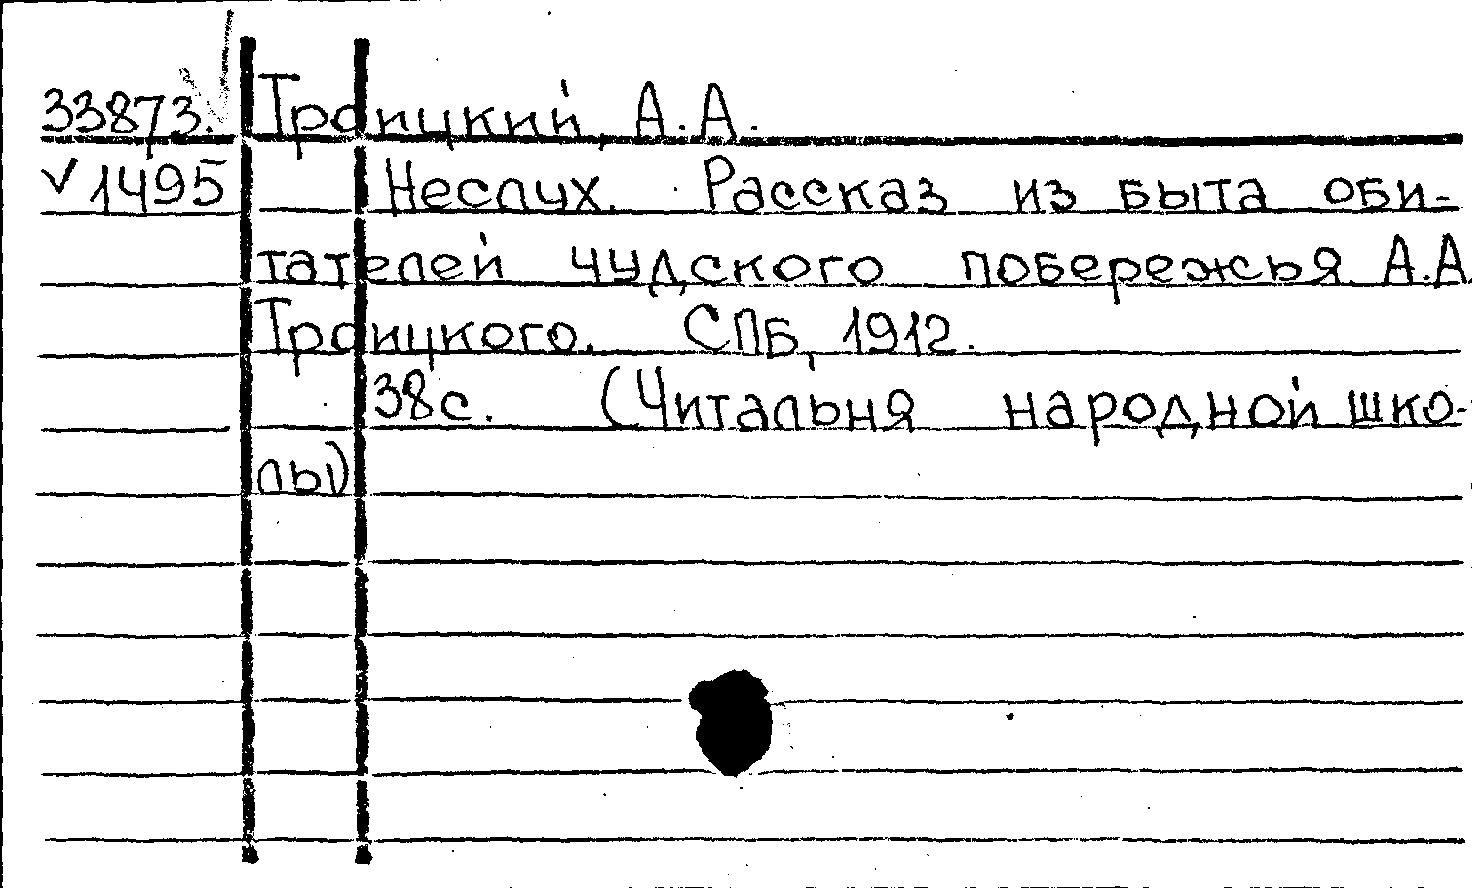 33873. Троицкий, А.А.
√ 1495 Неслух. Рассказ из быта оби-
тателей чудского побережья А.А.
Троицкого. СПБ, 1912.
38с. (Читальня народной шко-
лы)